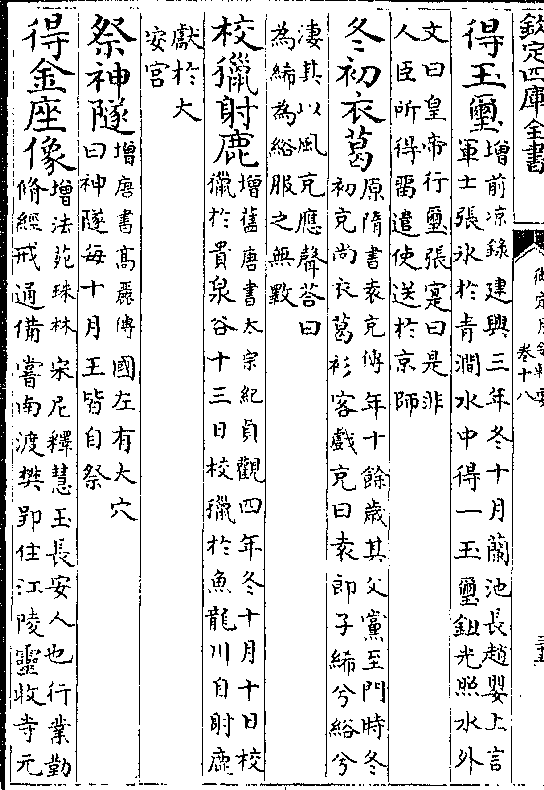 欽定四庫全書
御定月令輯要
卷十八
得玉璽
增前凉錄建興三年冬十月蘭池長趙嬰上言
軍士張氷於青澗水中得一玉璽鈕光照水外
文曰皇帝行璽張寔曰是非
人臣所得畱遣使送於京師
冬初衣葛
原隋書袁充傳年十餘歲其父黨至門時冬
初充尚衣葛衫客戲充曰袁郎子絺兮綌兮
淒其以風充應聲荅曰
為絺為綌服之無斁
校獵射鹿
增舊唐書太宗紀貞觀四年冬十月十日校
獵於貴泉谷十三日校獵於魚龍川自射鹿
獻於大
安宮
祭神隧
增唐書髙麗傳國左有大穴
曰神隧每十月王皆自祭
得金座像
增法苑珠林宋尼釋慧玉長安人也行業勤
脩經戒通備嘗南渡樊郢住江陵靈收寺元